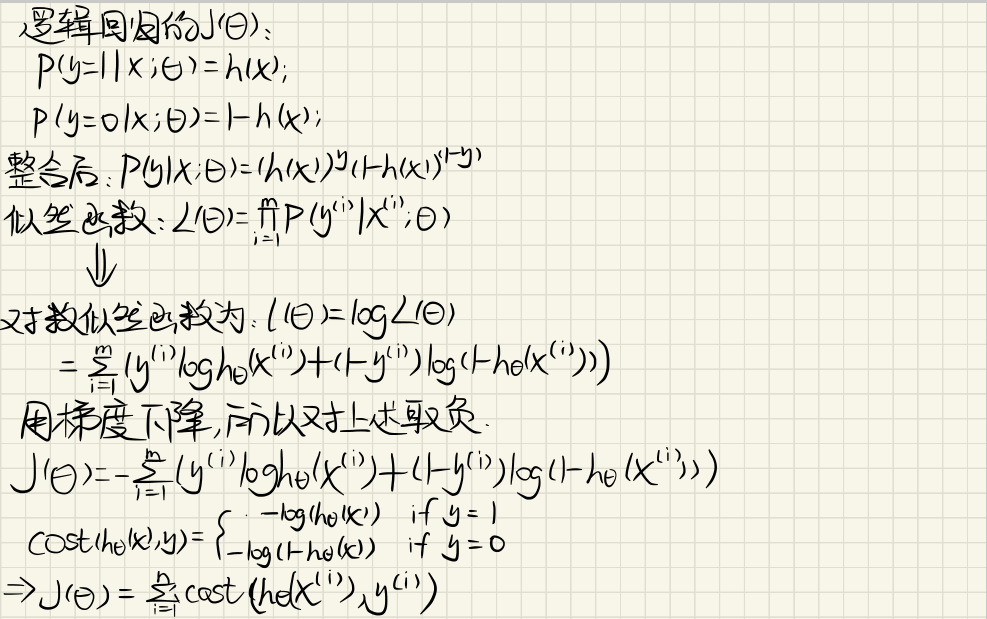 逻辑回归的J(θ):
P(y=1|x;θ)=h(x);
P(y=0|x;θ)=1-h(x);
整合后:P(y|x;θ)=(h(x))^y(1-h(x))^(1-y)
似然函数:L(θ)=∏_{i=1}^{m}P(y^(i)|x^(i);θ)
⇓
对数似然函数为:l(θ)=logL(θ)
=∑_{i=1}^{m}(y^(i)logh_θ(x^(i))+(1-y^(i))log(1-h_θ(x^(i))))
用梯度下降,所以对上述取负.
J(θ)=-∑_{i=1}^{m}(y^(i)logh_θ(x^(i))+(1-y^(i))log(1-h_θ(x^(i))))
cost(h_θ(x),y)={-log(h_θ(x)) if y=1
-log(1-h_θ(x)) if y=0
⇒J(θ)=∑_{i=1}^{n}cost(h_θ(x^(i)),y^(i))